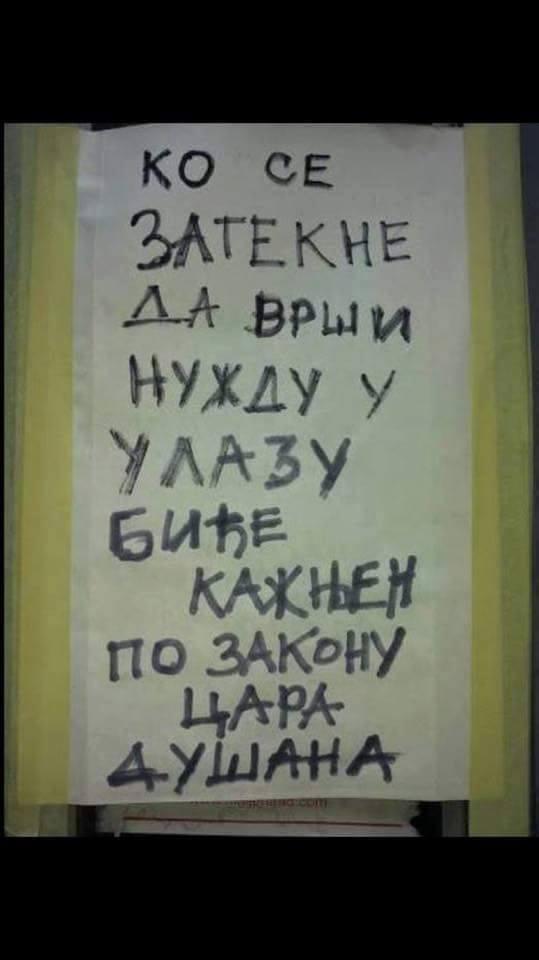 КО СЕ
ЗАТЕКНЕ
ДА ВРШИ
НУЖДУ У
УЛАЗУ
БИЂЕ
КАЖЊЕН
ПО ЗАКОНУ
ЦАРА
ДУШАНА